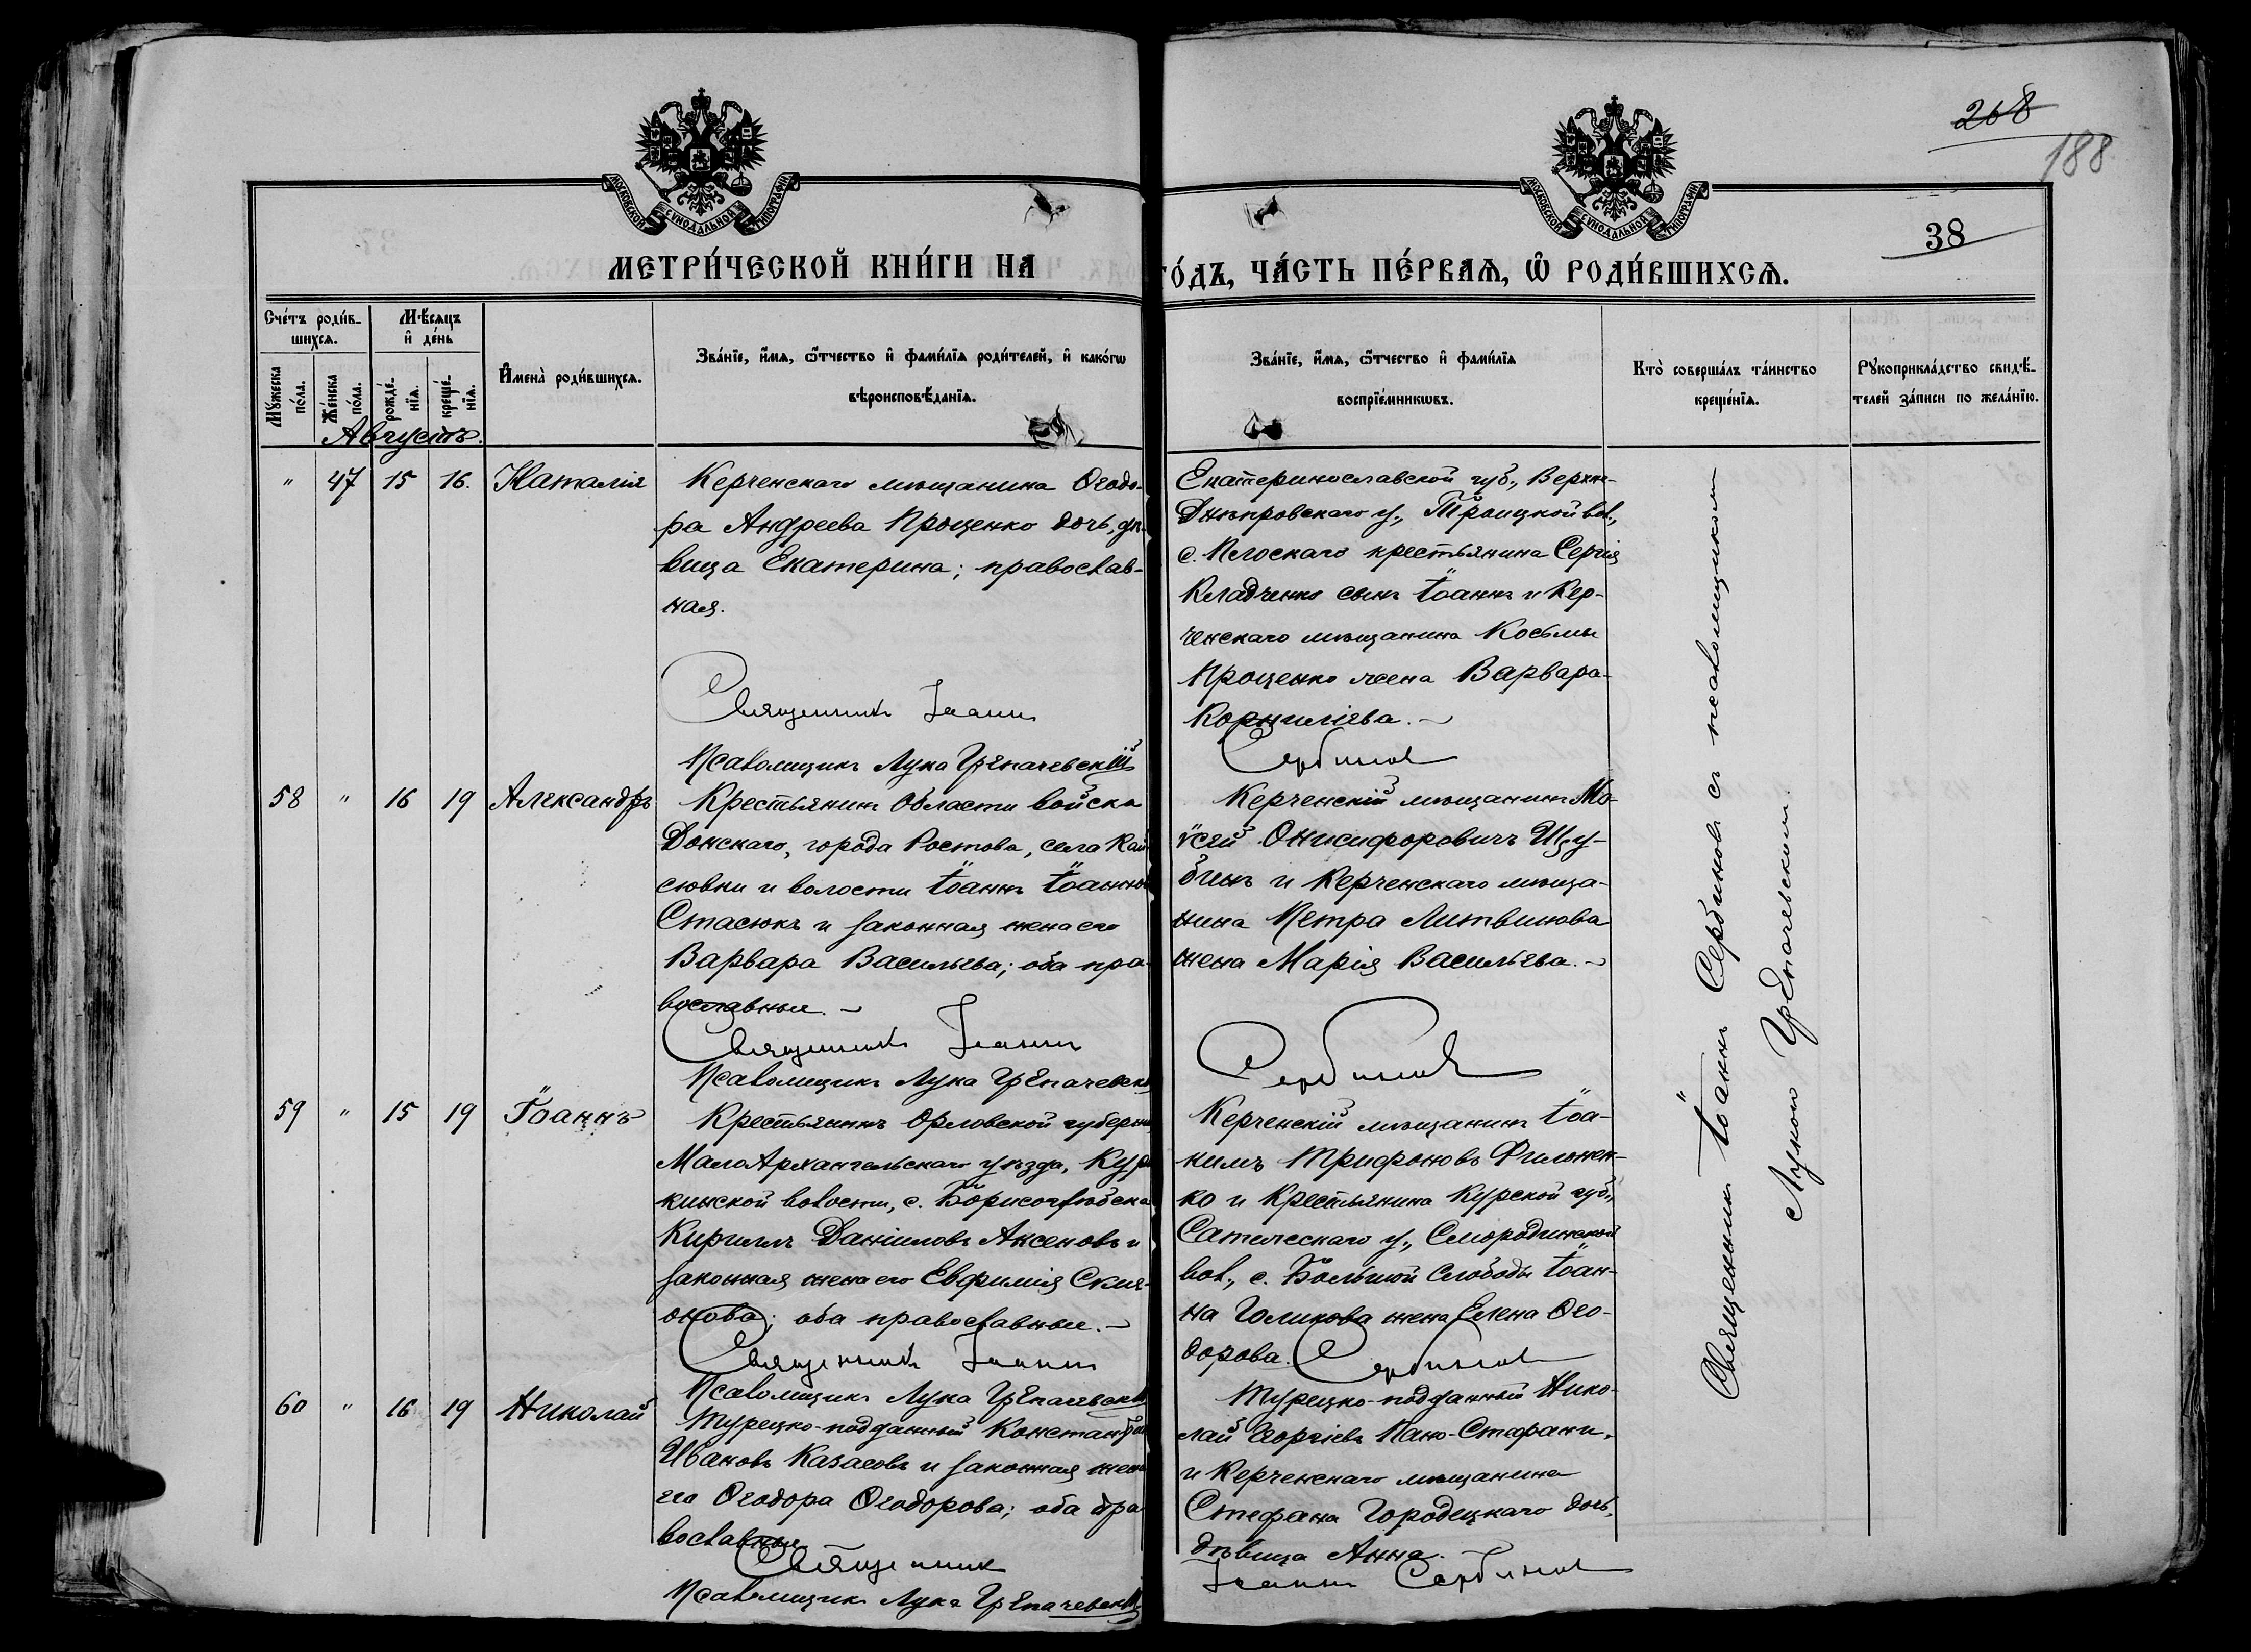 268
188
38
МОСКОВСКОЙ СѴНОДАЛЬНОЙ ТИПОГРАФІИ
МОСКОВСКОЙ СѴНОДАЛЬНОЙ ТИПОГРАФІИ
МЕТРИ́ЧЕСКОЙ КНИ́ГИ НА
ГО́ДЪ, ЧА́СТЬ ПЕ́РВАѦ, Ѿ РОДИ́ВШИХСѦ.
Сче́тъ роди́в-
шихсѧ.
Мѣ́сѧцъ
и҆ де́нь
Мꙋ́жеска
по́ла.
Же́нска
по́ла.
рожде́-
нїѧ.
креще́-
нїѧ.
И҆мена̀ роди́вшихсѧ.
Зва́нїе, и҆́мѧ, ѻ҆́тчество и҆ фами́лїѧ роди́телей, и҆ како́гѡ
вѣроисповѣ́данїѧ.
Зва́нїе, и҆́мѧ, ѻ҆́тчество и҆ фами́лїѧ
воспрїе́мникѡвъ.
Кто̀ соверша́лъ та́инство
креще́нїѧ.
Рꙋкоприкла́дство свидѣ́-
телей за́писи по жела́нїю.
Августъ.
" 47 15 16. Наталія
Керченскаго мѣщанина Ѳеодо-
ра Андреева Проценко дочь, дѣ-
вица Екатерина; православ-
ная.
Священникъ Іоаннъ
Псаломщикъ Лука Грепачевскій
Екатеринославской губ., Верхне-
Днѣпровскаго у., Троицкой вол.,
с. Плоскаго крестьянина Сергія
Кладченко сынъ Іоаннъ и Кер-
ченскаго мѣщанина Косьмы
Проценко жена Варвара
Корниліева.
Сербиновъ
58 " 16 19 Александръ
Крестьянинъ Области войска
Донскаго, города Ростова, села
сювки и волости Іоаннъ Іоаннов
Стасюкъ и законная жена его
Варвара Васильева; оба пра-
вославные.
Священникъ Іоаннъ
Псаломщикъ Лука Грепачевскій
Керченскій мѣщанинъ Мо-
ѵсей Онисифоровичъ Щу-
бинъ и Керченскаго мѣща-
нина Петра Литвинова
жена Марія Васильева.
Сербиновъ
59 " 15 19 Іоаннъ
Крестьянинъ Орловской губерніи
МалоАрхангельскаго уѣзда,
кинской волости, с. Борисоглѣбска
Кириллъ Даніиловъ Аксеновъ и
законная жена его Евфимія
онова; оба православные.
Священникъ Іоаннъ
Псаломщикъ Лука Грепачевскій
Керченскій мѣщанинъ Іоа-
кимъ Трифоновъ Филонен-
ко и Крестьянина Курской губ.,
у., Смородинской
вол., с. Большой Слободы Іоан-
на Голикова жена Елена Ѳео-
дорова.
Сербиновъ
60 " 16 19 Николай
Турецко-подданный Константинъ
Ивановъ Казасовъ и законная жена
его Ѳеодора Ѳеодорова; оба пра-
вославные.
Священникъ
Псаломщикъ Лука Грепачевскій
Турецко-подданный Нико-
лай Георгіевъ Пано-Стефани,
и Керченскаго мѣщанина
Стефана Городецкаго дочь,
дѣвица Анна.
Іоаннъ Сербиновъ
Священникъ Іоаннъ Сербиновъ съ псаломщикомъ
Лукою Грепачевскимъ.